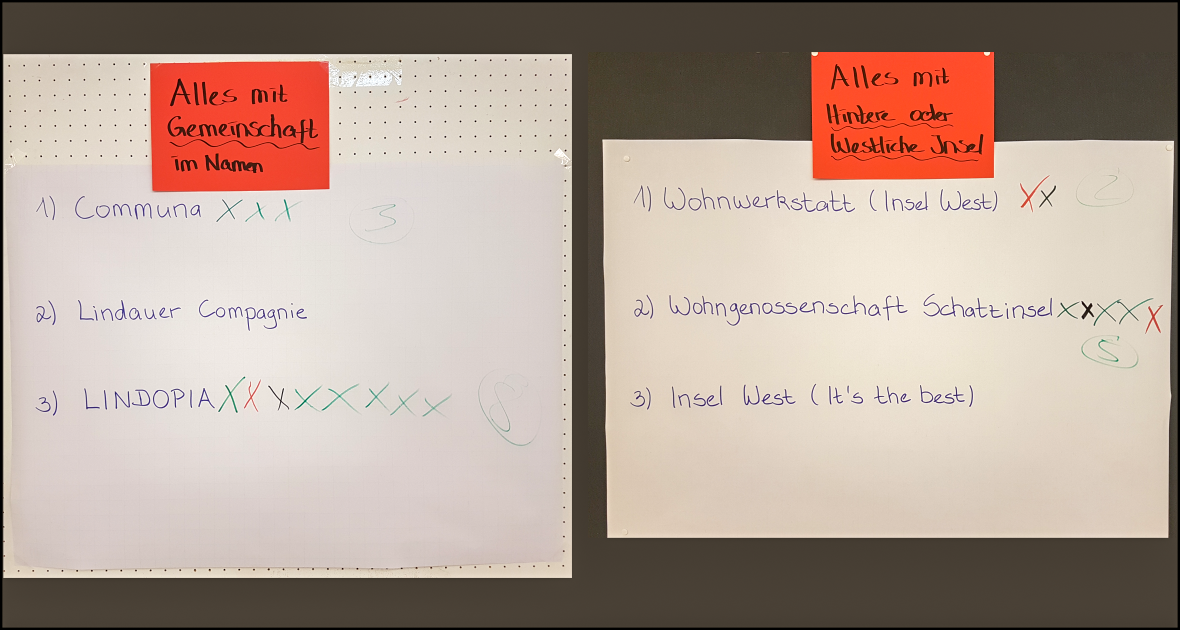 Alles mit
Gemeinschaft
im Namen
1) Communa X X X 3
2) Lindauer Compagnie
3) LINDOPIA X X X X X X X X 8
Alles mit
Hintere oder
Westliche Insel
1) Wohnwerkstatt (Insel West) X X 2
2) Wohngenossenschaft Schatzinsel X X X X X
5
3) Insel West (It's the best)